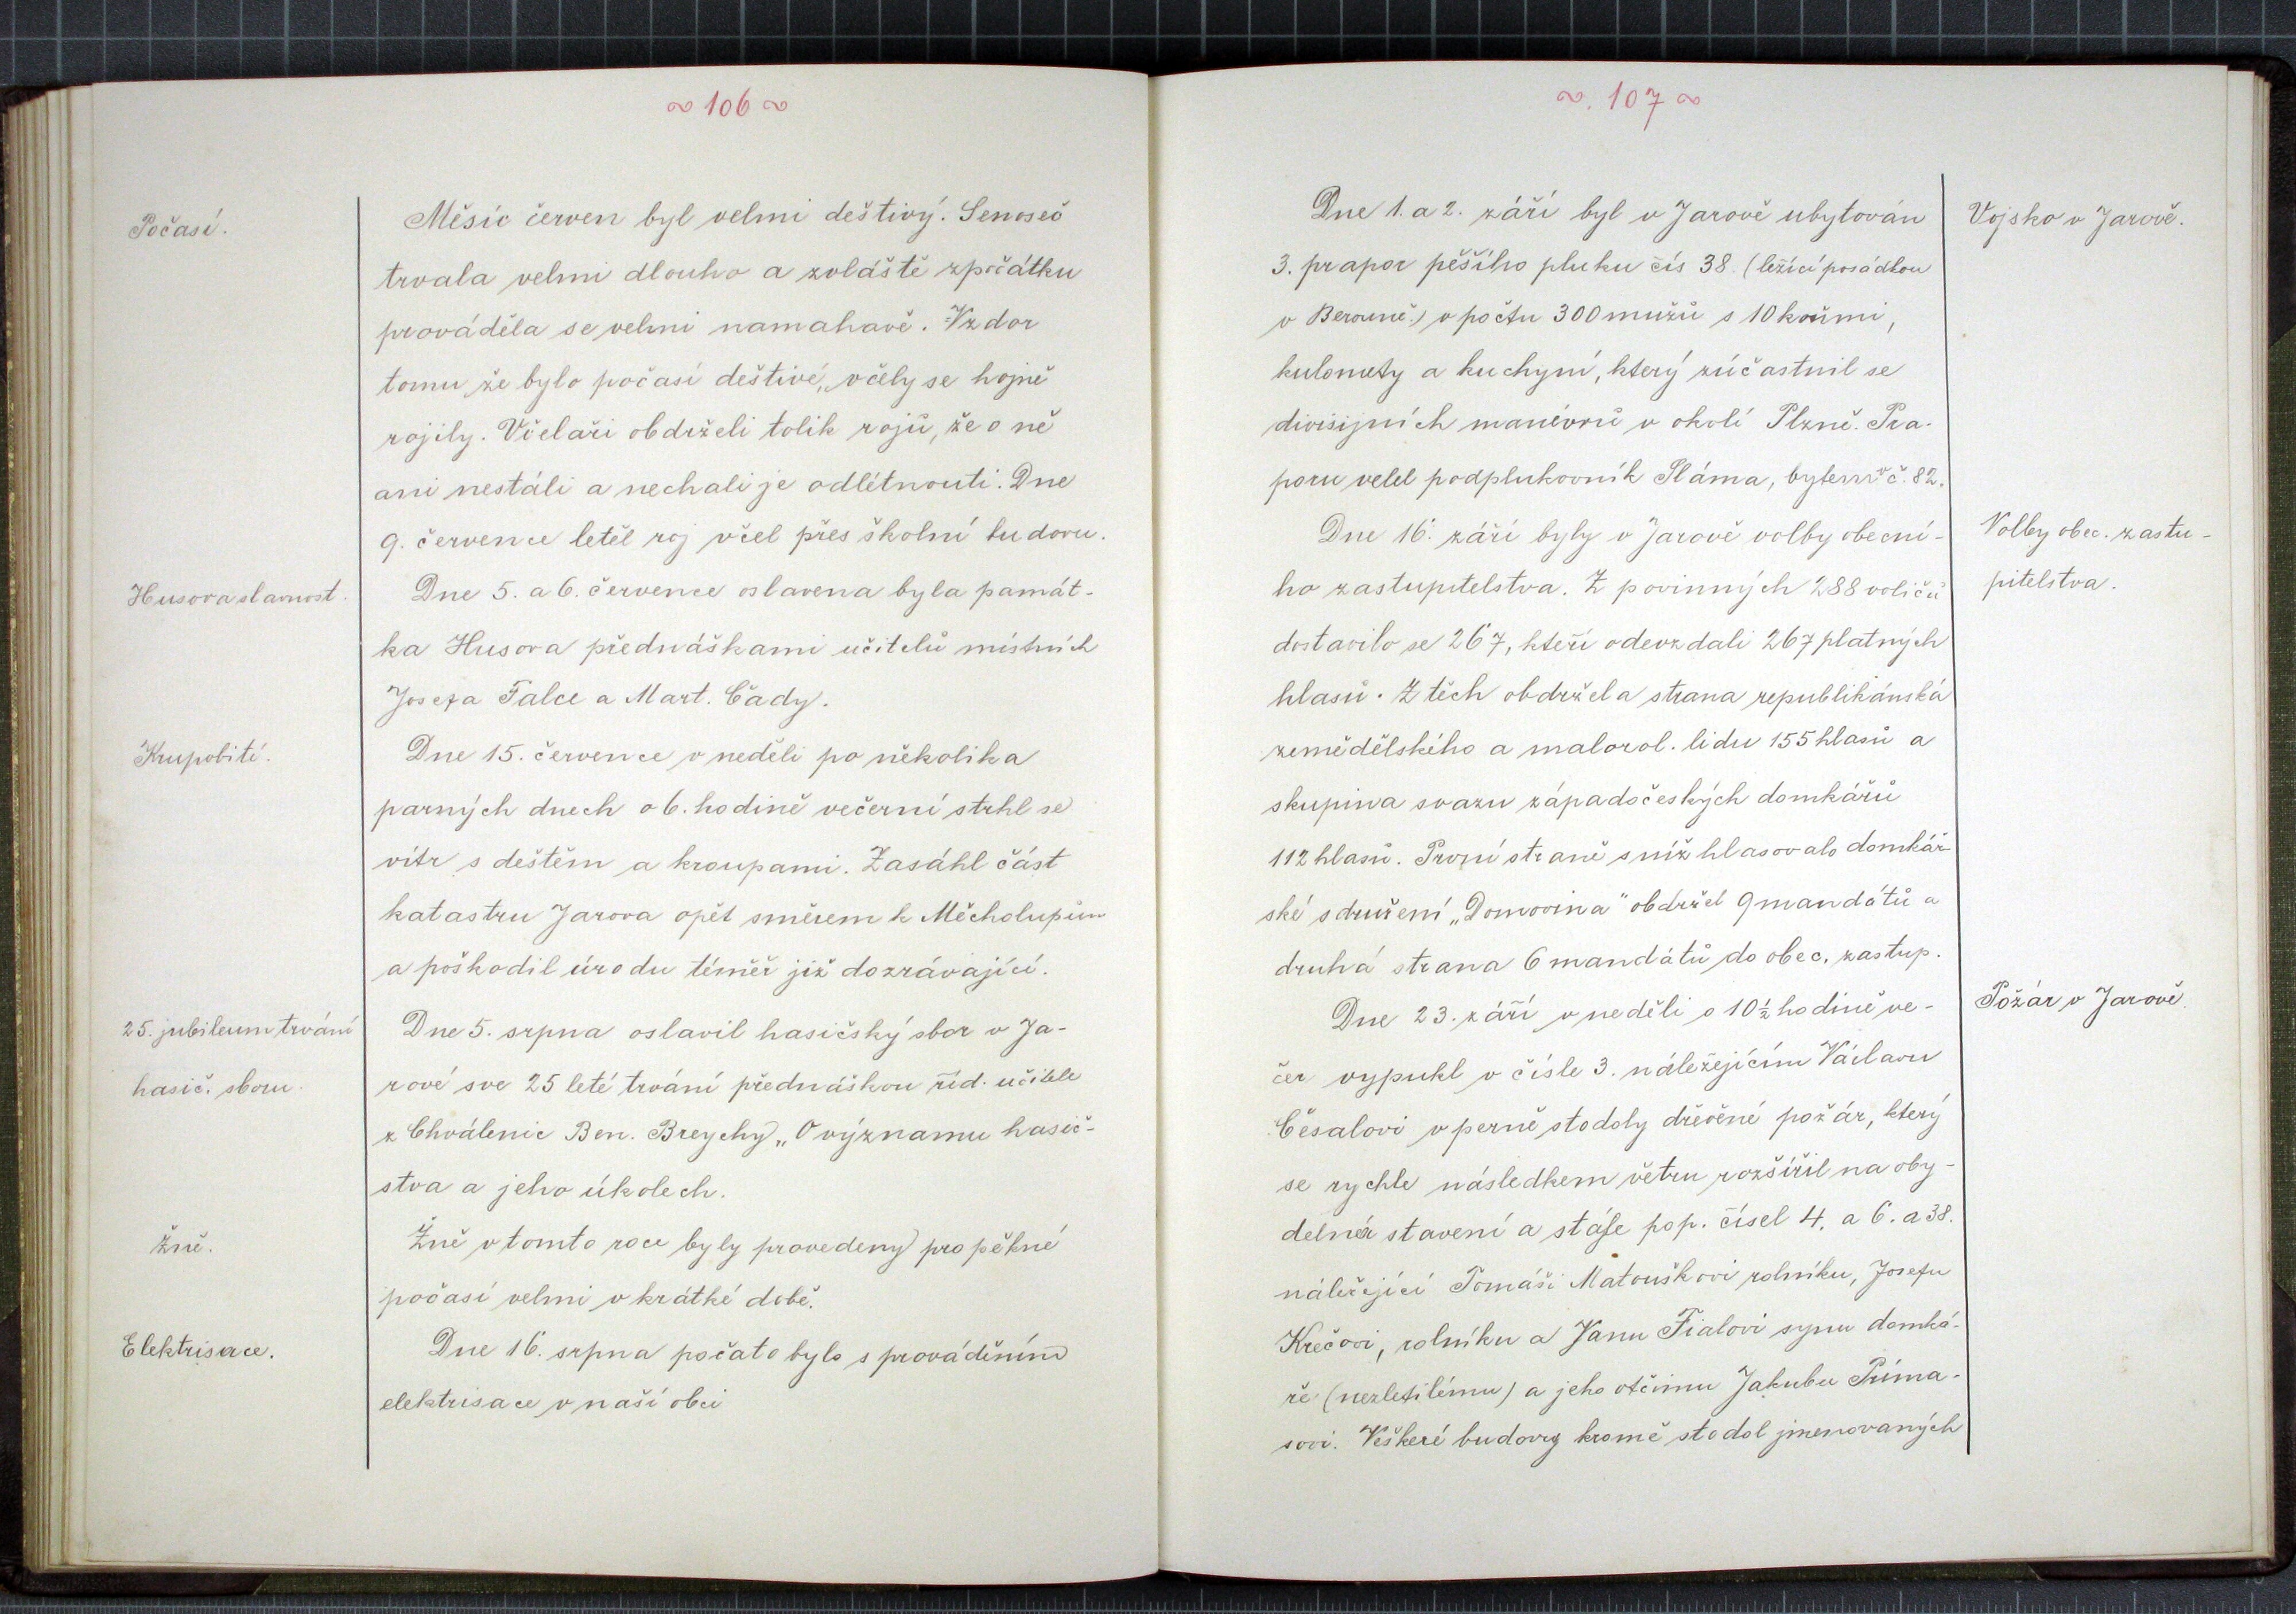 ~ 106 ~
Počasí.
Měsíc červen byl velmi deštivý. Senoseč
trvala velmi dlouho a zvláště zpočátku
prováděla se velmi namahavě. Vzdor
tomu že bylo počasí deštivé, včely se hojně
rojily. Včelaři obdrželi tolik rojů, že o ně
ani nestáli a nechali je odlétnouti. Dne
9. července letěl roj včel přes školní budovu.
Husova slavnost.
Dne 5. a 6. července oslavena byla památ-
ka Husova přednáškami učitelů místních
Josefa Falce a Mart. Čady.
Krupobití.
Dne 15. července v neděli po několika
parných dnech o 6. hodině večerní strhl se
vítr s deštěm a kroupami. Zasáhl část
katastru Jarova opět směrem k Měcholupům
a poškodil úrodu téměř již dozrávající.
25. jubileum trvání
hasič. sboru.
Dne 5. srpna oslavil hasičský sbor v Ja-
rově sve 25 leté trvání přednáškou říd. učitele
z Chválenic Ben. Breychy „O významu hasič-
stva a jeho úkolech.
Žně.
Žně v tomto roce byly provedeny pro pěkné
počasí velmi v krátké době.
Elektrisace.
Dne 16. srpna počato bylo s prováděním
elektrisace v naší obci
~. 107 ~
Dne 1. a 2. září byl v Jarově ubytován
Vojsko v Jarově.
3. prapor pěšího pluku čís 38. (ležící posádkou
v Berouně.) v počtu 300 mužů s 10 koňmi,
kulomety a kuchyní, který zúčastnil se
divisijních manévrů v okolí Plzně. Pra-
poru velel podplukovník Sláma, bytem v č. 82.
Dne 16. září byly v Jarově volby obecní-
Volby obec. zastu-
pitelstva.
ho zastupitelstva. Z povinných 288 voličů
dostavilo se 267, kteří odevzdali 267 platných
hlasů. Z těch obdržela strana republikánská
zemědělského a malorol. lidu 155 hlasů a
skupina svazu západočeských domkářů
112 hlasů. První straně s níž hlasovalo domkář-
ské sdružení „Domovina" obdržel 9 mandátů a
druhá strana 6 mandátů do obec. zastup.
Požár v Jarově.
Dne 23. září v neděli o 10 ½ hodině ve-
čer vypukl v čísle 3. náležejícím Václavu
Česalovi v perně stodoly dřevěné požár, který
se rychle následkem větru rozšířil na oby-
delná stavení a stáje pop. čísel 4. a 6. a 38.
náležející Tomáši Matouškovi rolníku, Josefu
Krečovi, rolníku a Janu Fialovi synu domká-
ře (nezletilému) a jeho otčímu Jakubu Príma-
sovi. Veškeré budovy kromě stodol jmenovaných